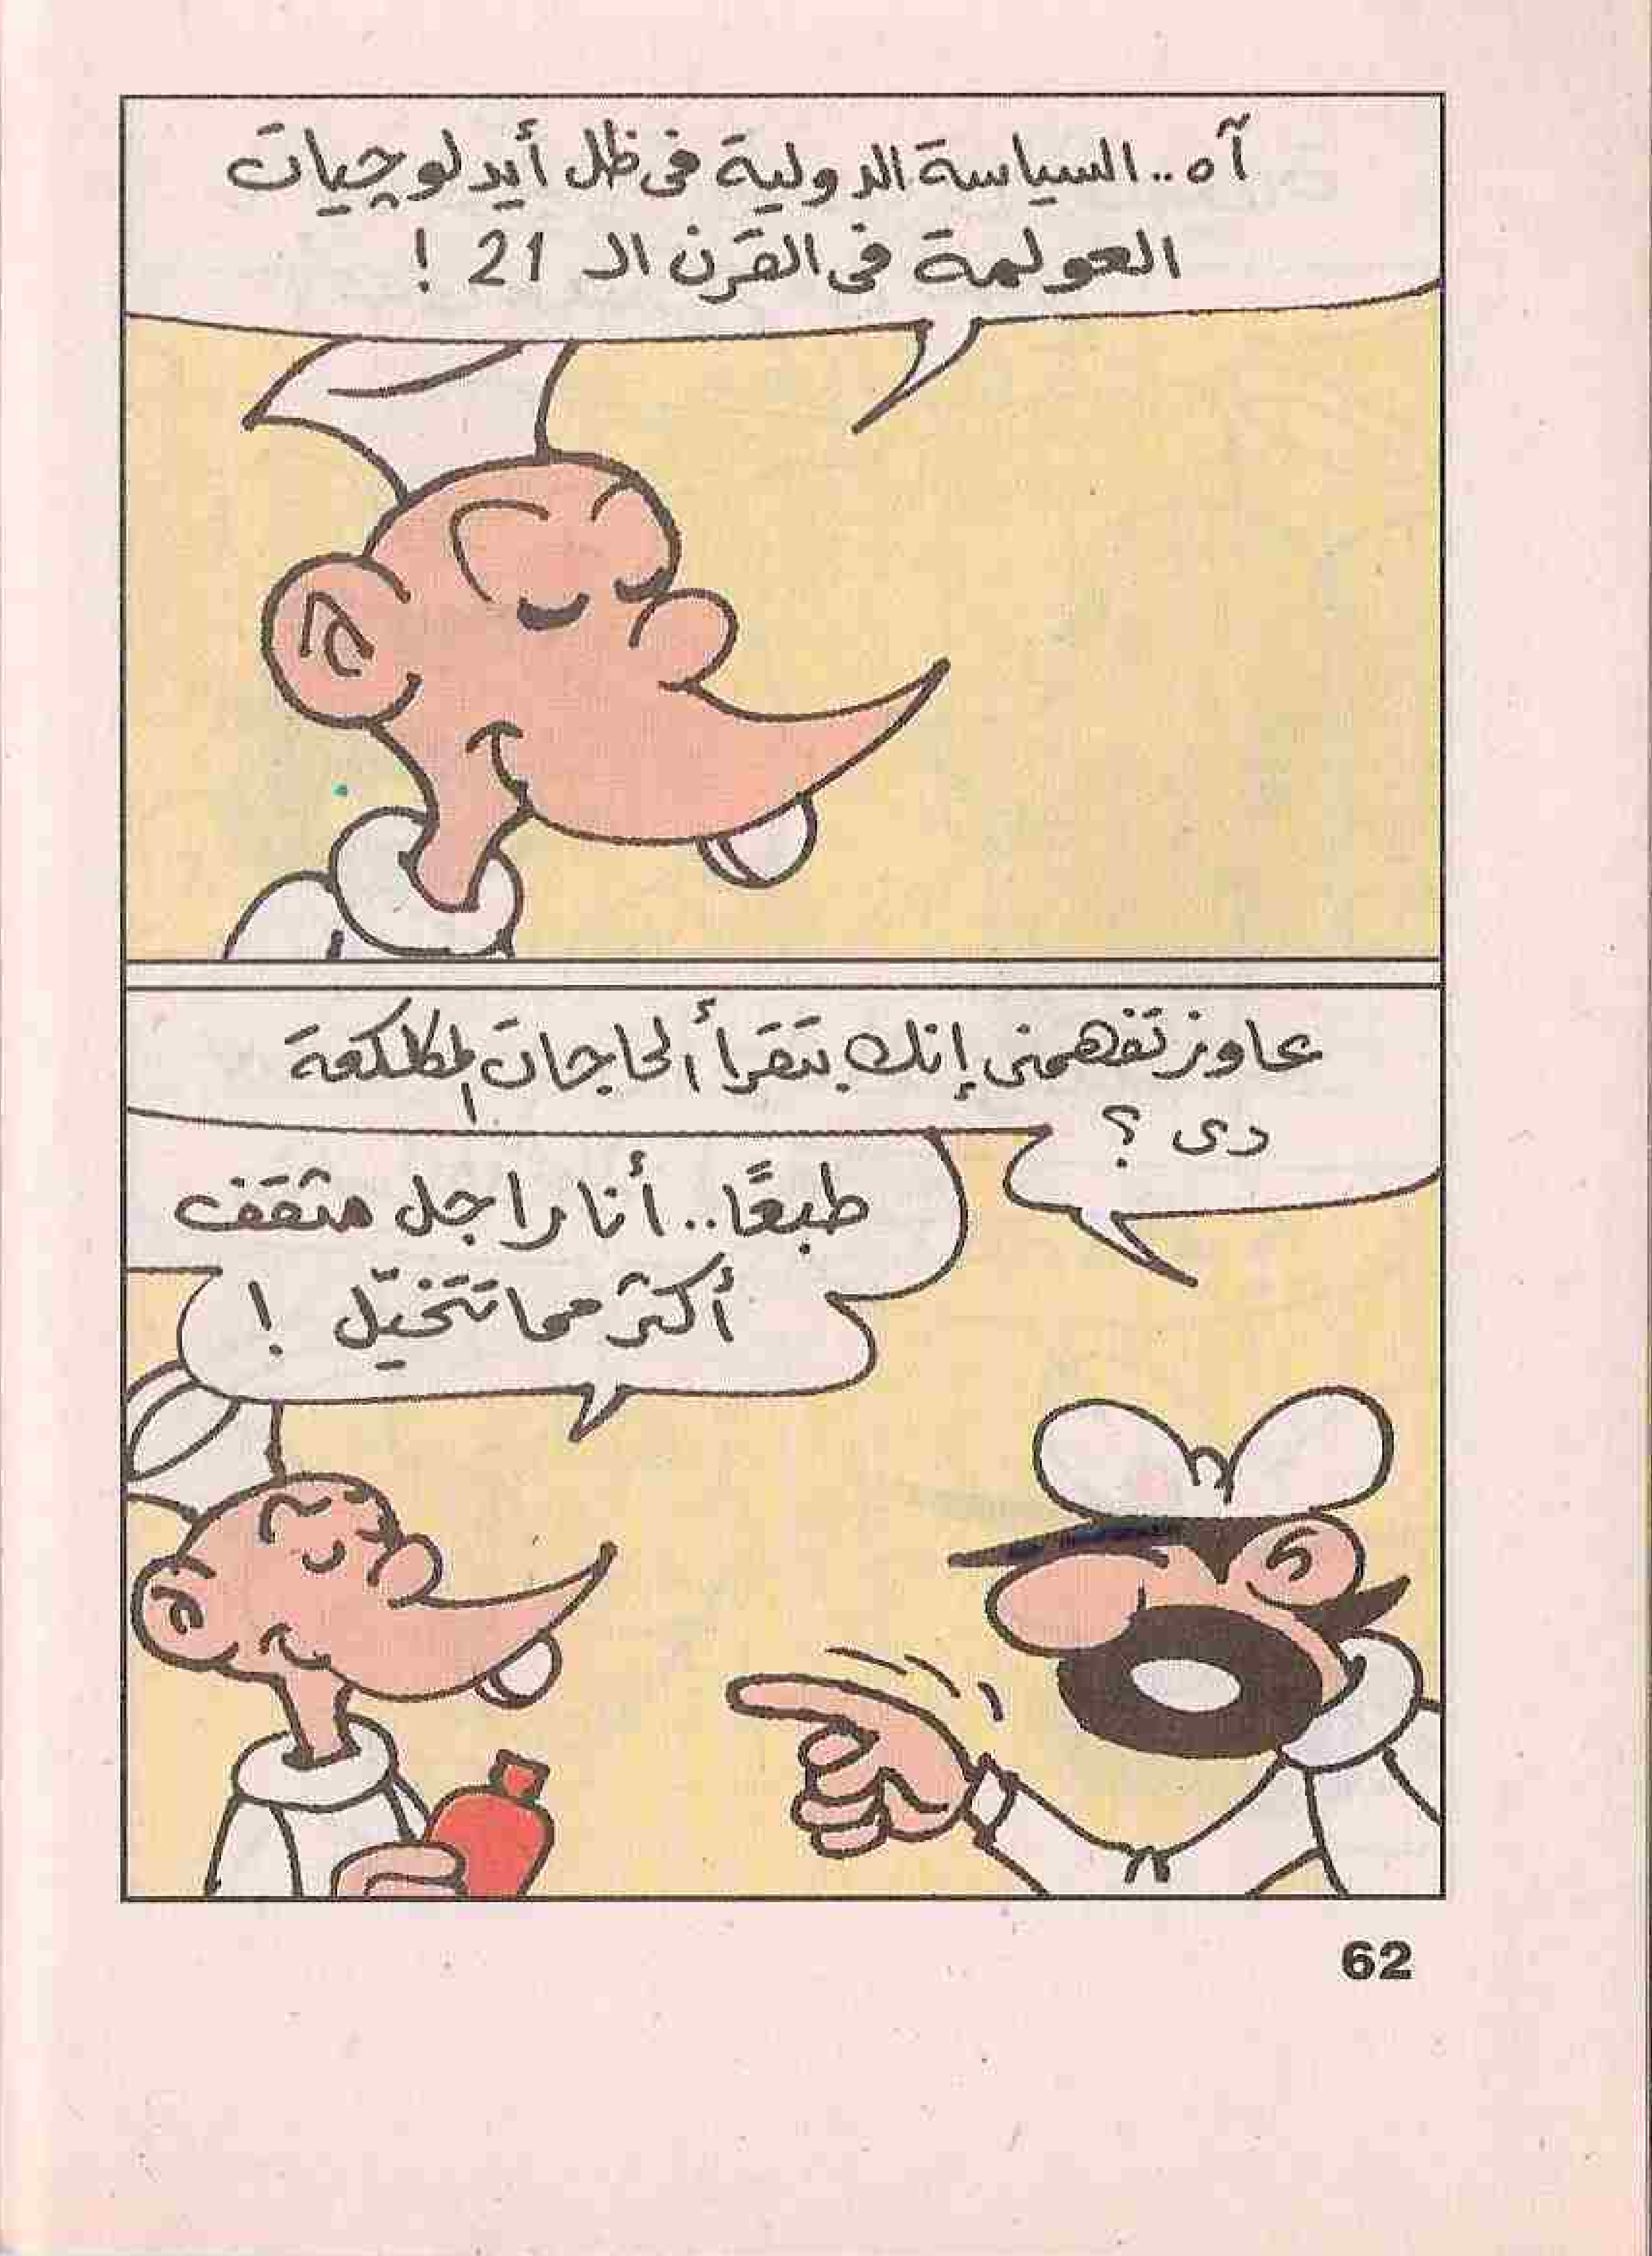 آه.. السياسة الدولية فى ظل أيدلوچيات
العولمة فى القرن الـ 21 !
عاوز تفهمنى إنك بتقرأ الحاجات المكلكعة
دى ؟
طبعًا.. أنا راجل مثقف
أكتر مما تتخيّل !
62